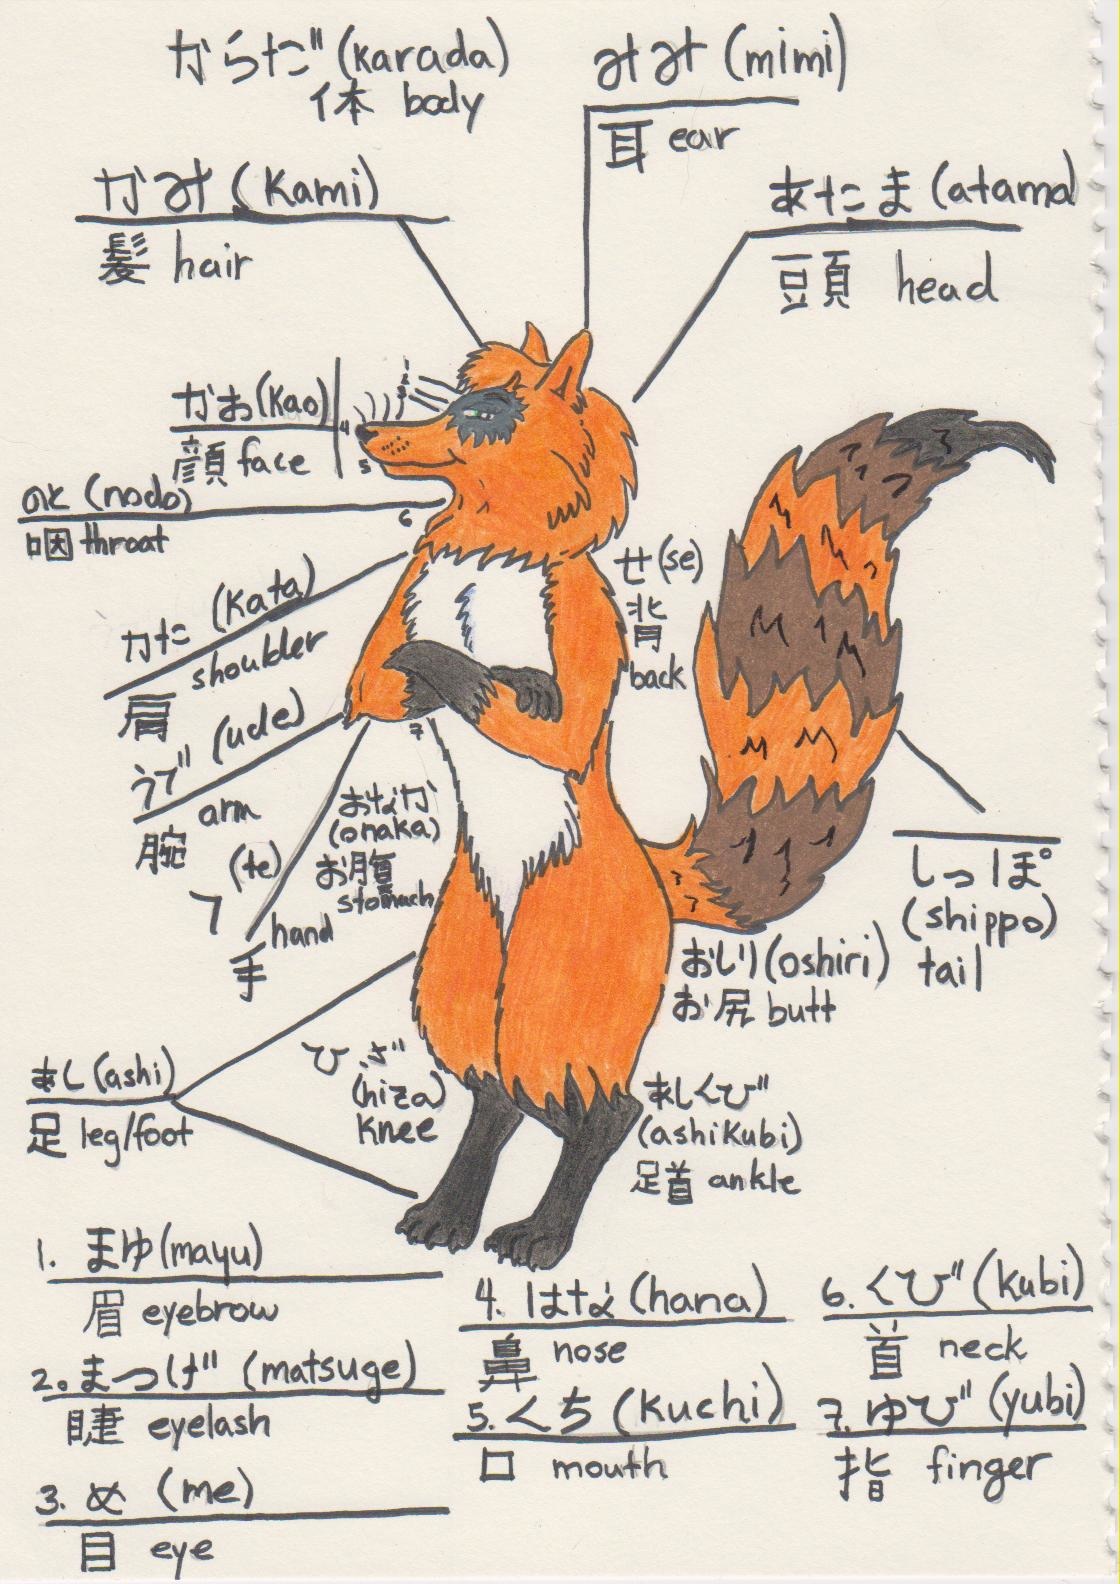 からだ (karada)
体 body
みみ (mimi)
耳 ear
かみ (kami)
髪 hair
あたま (atama)
頭 head
かお (kao)
顔 face
のど (nodo)
咽 throat
かた (kata)
shoulder
肩
うで (ude)
arm
腕
て (te)
hand
手
せ (se)
背
back
おなか
(onaka)
お腹
stomach
しっぽ
(shippo)
tail
おしり (oshiri)
お尻 butt
あし (ashi)
足 leg/foot
ひざ
(hiza)
knee
あしくび
(ashikubi)
足首 ankle
1
2
3
4
5
6
7
1. まゆ (mayu)
眉 eyebrow
2. まつげ (matsuge)
睫 eyelash
3. め (me)
目 eye
4. はな (hana)
鼻 nose
5. くち (kuchi)
口 mouth
6. くび (kubi)
首 neck
7. ゆび (yubi)
指 finger